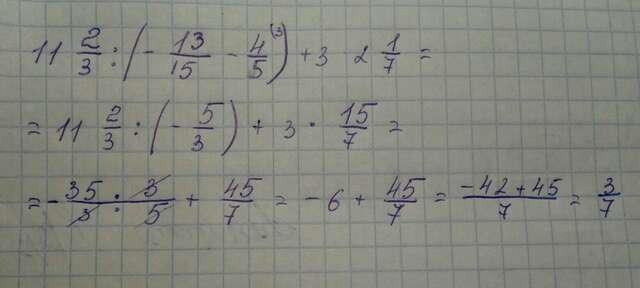 11 2/3 : (- 13/15 - 4/5 (3)) + 3 2 1/7 =
= 11 2/3 : (- 5/3) + 3 · 15/7 =
= - 35 · 3 / 3 : 5 + 45/7 = - 6 + 45/7 = -42 + 45 / 7 = 3/7